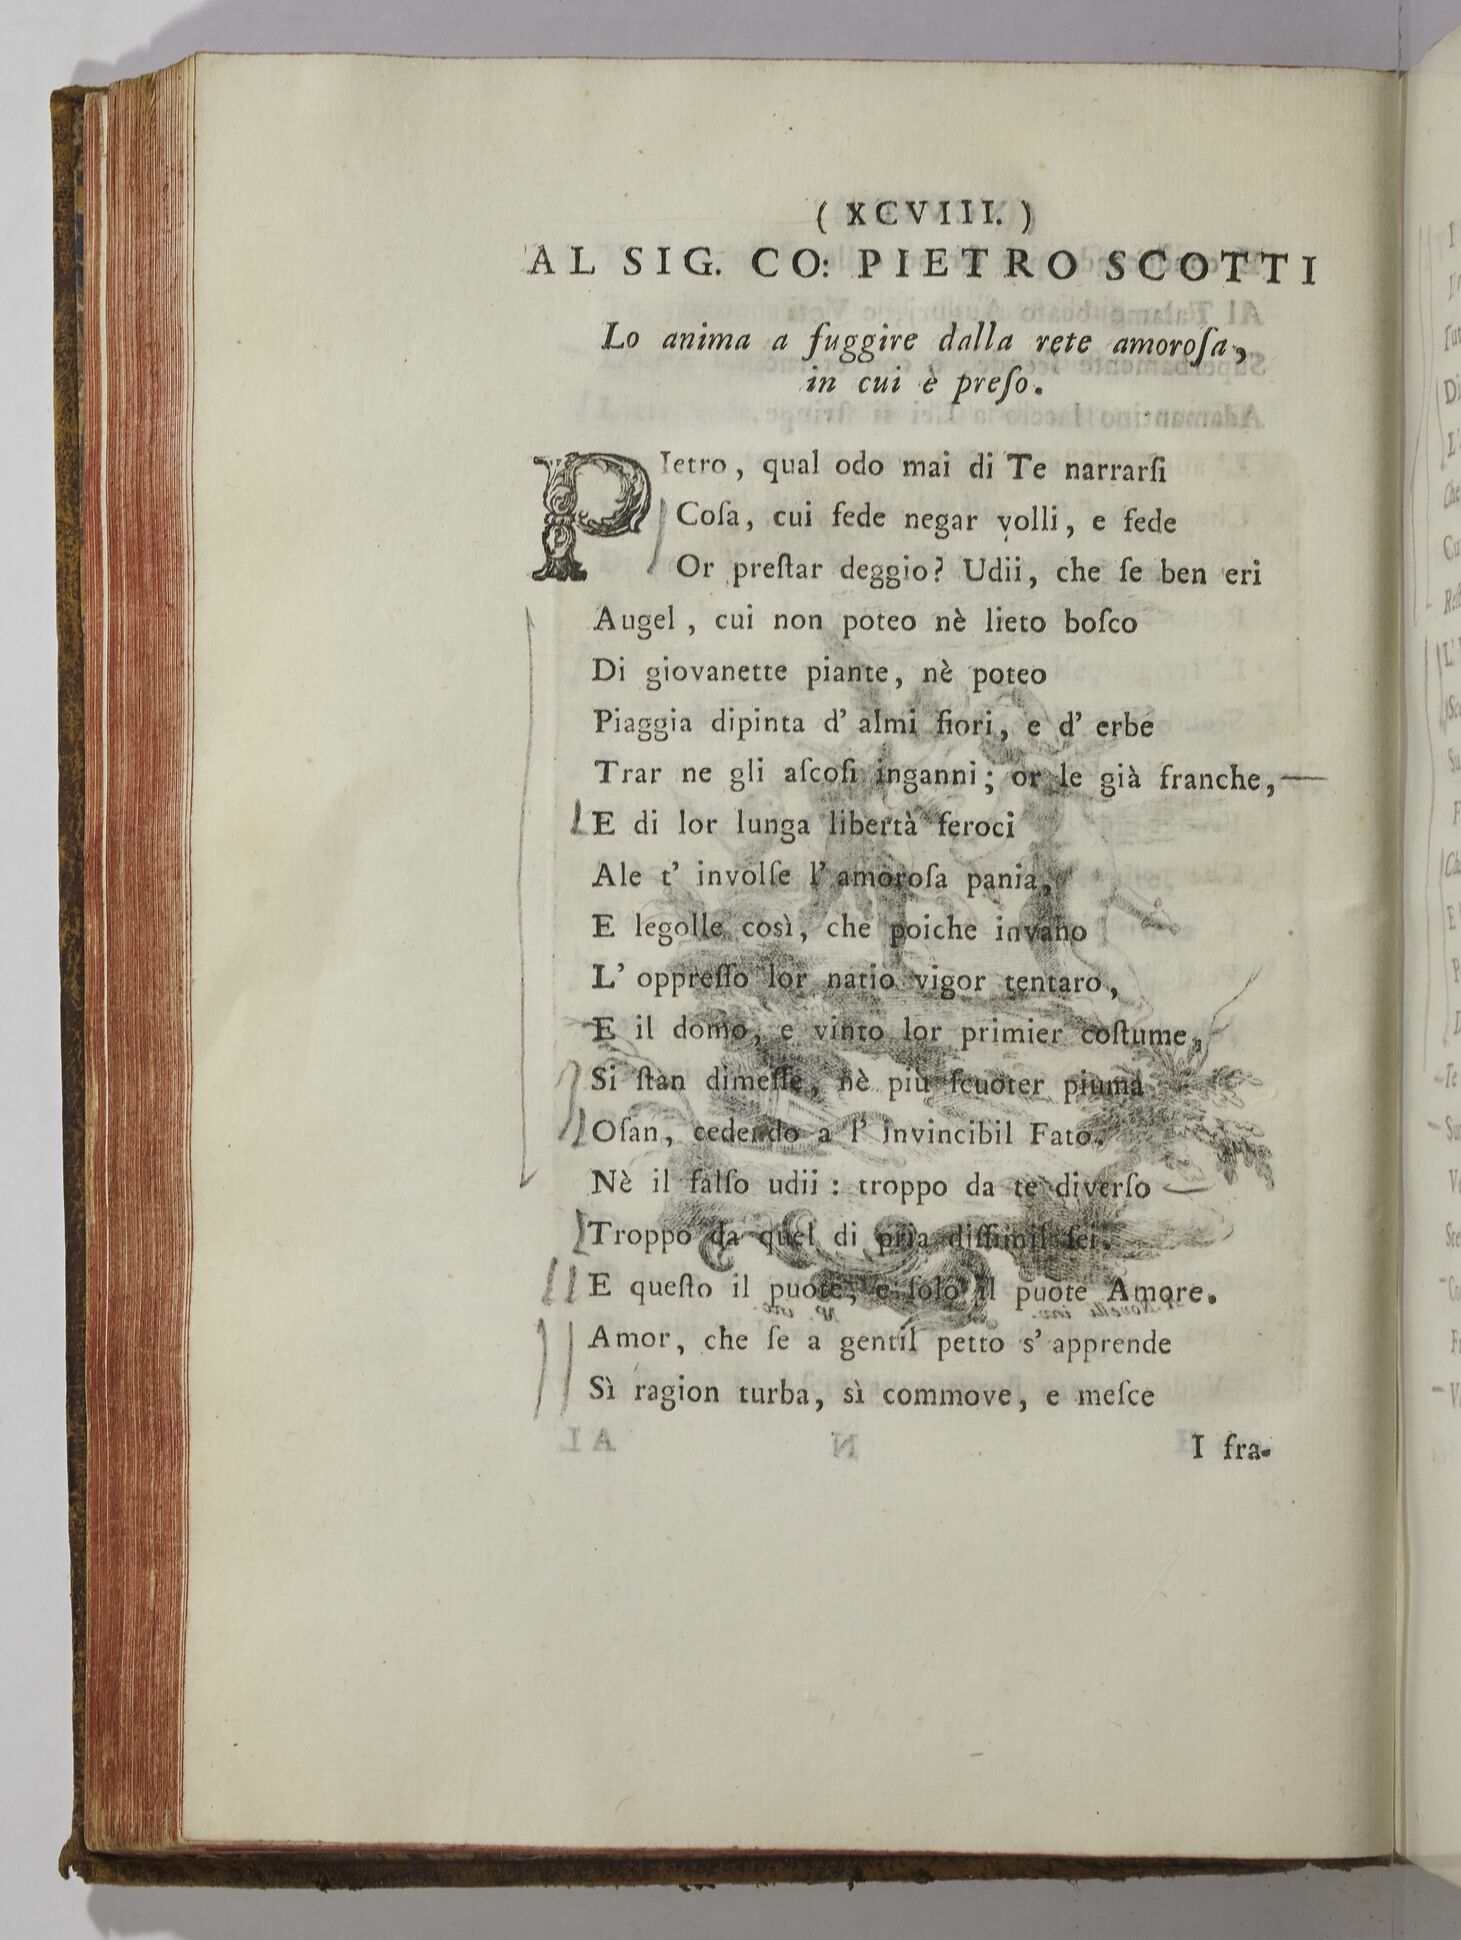 ( XCVIII. )
AL SIG. CO: PIETRO SCOTTI
Lo anima a fuggire dalla rete amoroſa,
in cui è preſo.
PIetro, qual odo mai di Te narrarſi
Coſa, cui fede negar volli, e fede
Or preſtar deggio? Udii, che ſe ben eri
Augel, cui non poteo nè lieto boſco
Di giovanette piante, nè poteo
Piaggia dipinta d' almi fiori, e d' erbe
Trar ne gli aſcoſi inganni; or le già franche,
E di lor lunga libertà feroci
Ale t' involſe l' amoroſa pania,
E legolle così, che poiche invano
L' oppreſſo lor natio vigor tentaro,
E il domo, e vinto lor primier coſtume,
Si ſtan dimeſſe, nè più ſcuoter piuma
Oſan, cedendo a l' invincibil Fato.
Nè il falſo udii: troppo da te diverſo
Troppo da quel di pria diſſimil ſei.
E queſto il puote, e ſolo il puote Amore.
Amor, che ſe a gentil petto s' apprende
Sì ragion turba, sì commove, e meſce
I fra-